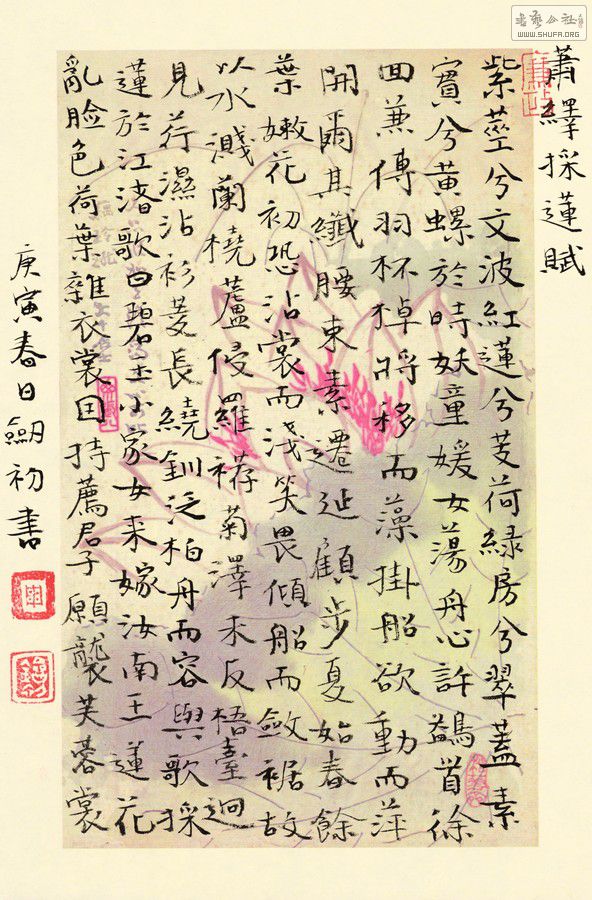 書藝公社
WWW.SHUFA.ORG
蕭繹採蓮賦
紫莖兮文波紅蓮兮芰荷綠房兮翠蓋素
實兮黃螺於時妖童媛女蕩舟心許鷁首徐
回兼傳羽杯棹將移而藻掛船欲動而萍
開爾其纖腰束素遷延顧步夏始春餘
葉嫩花初恐沾裳而淺笑畏傾船而斂裾故
以水濺蘭橈蘆侵羅菊澤未反梧臺迥
見荇濕沾衫菱長繞釧泛柏舟而容與歌採
蓮於江渚歌曰碧玉小家女來嫁汝南王蓮花
亂臉色荷葉雜衣裳因持薦君子願襲芙蓉裳
庚寅春日劒初書